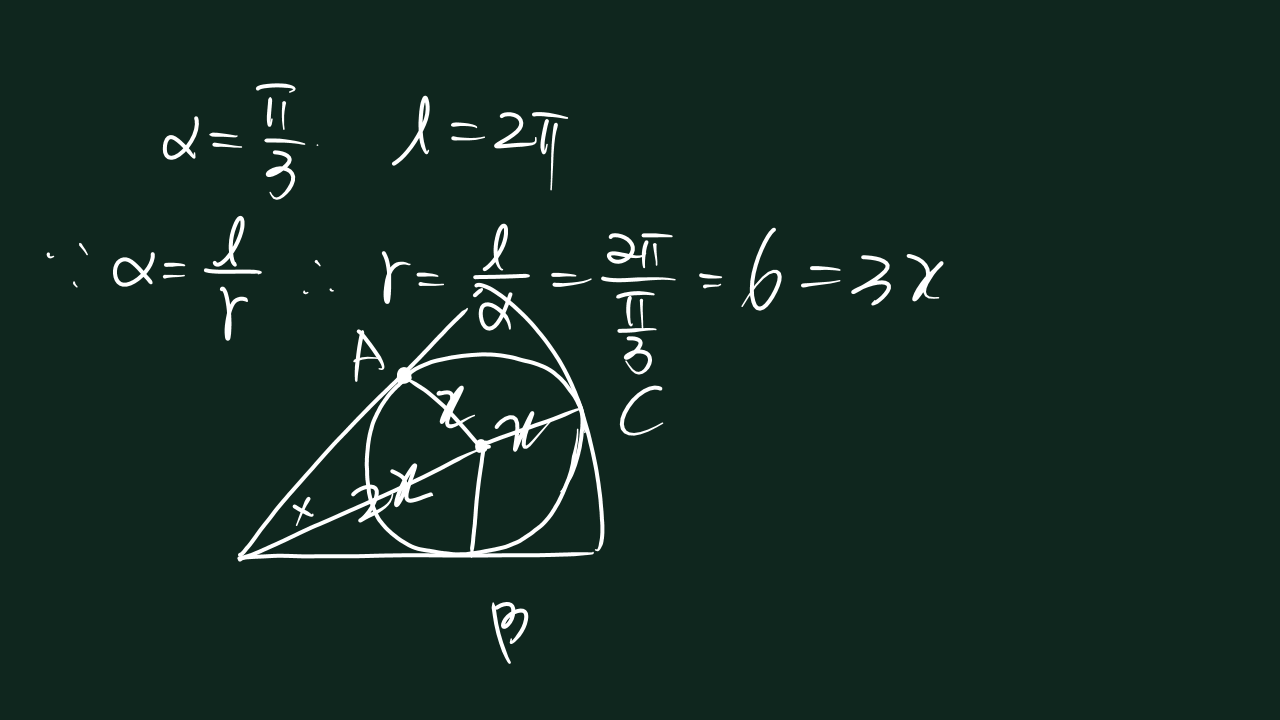 α = π/3 l = 2π
∵ α = l/r ∴ r = l/α = 2π/(π/3) = 6 = 3x
A
C
x x
2x
×
B